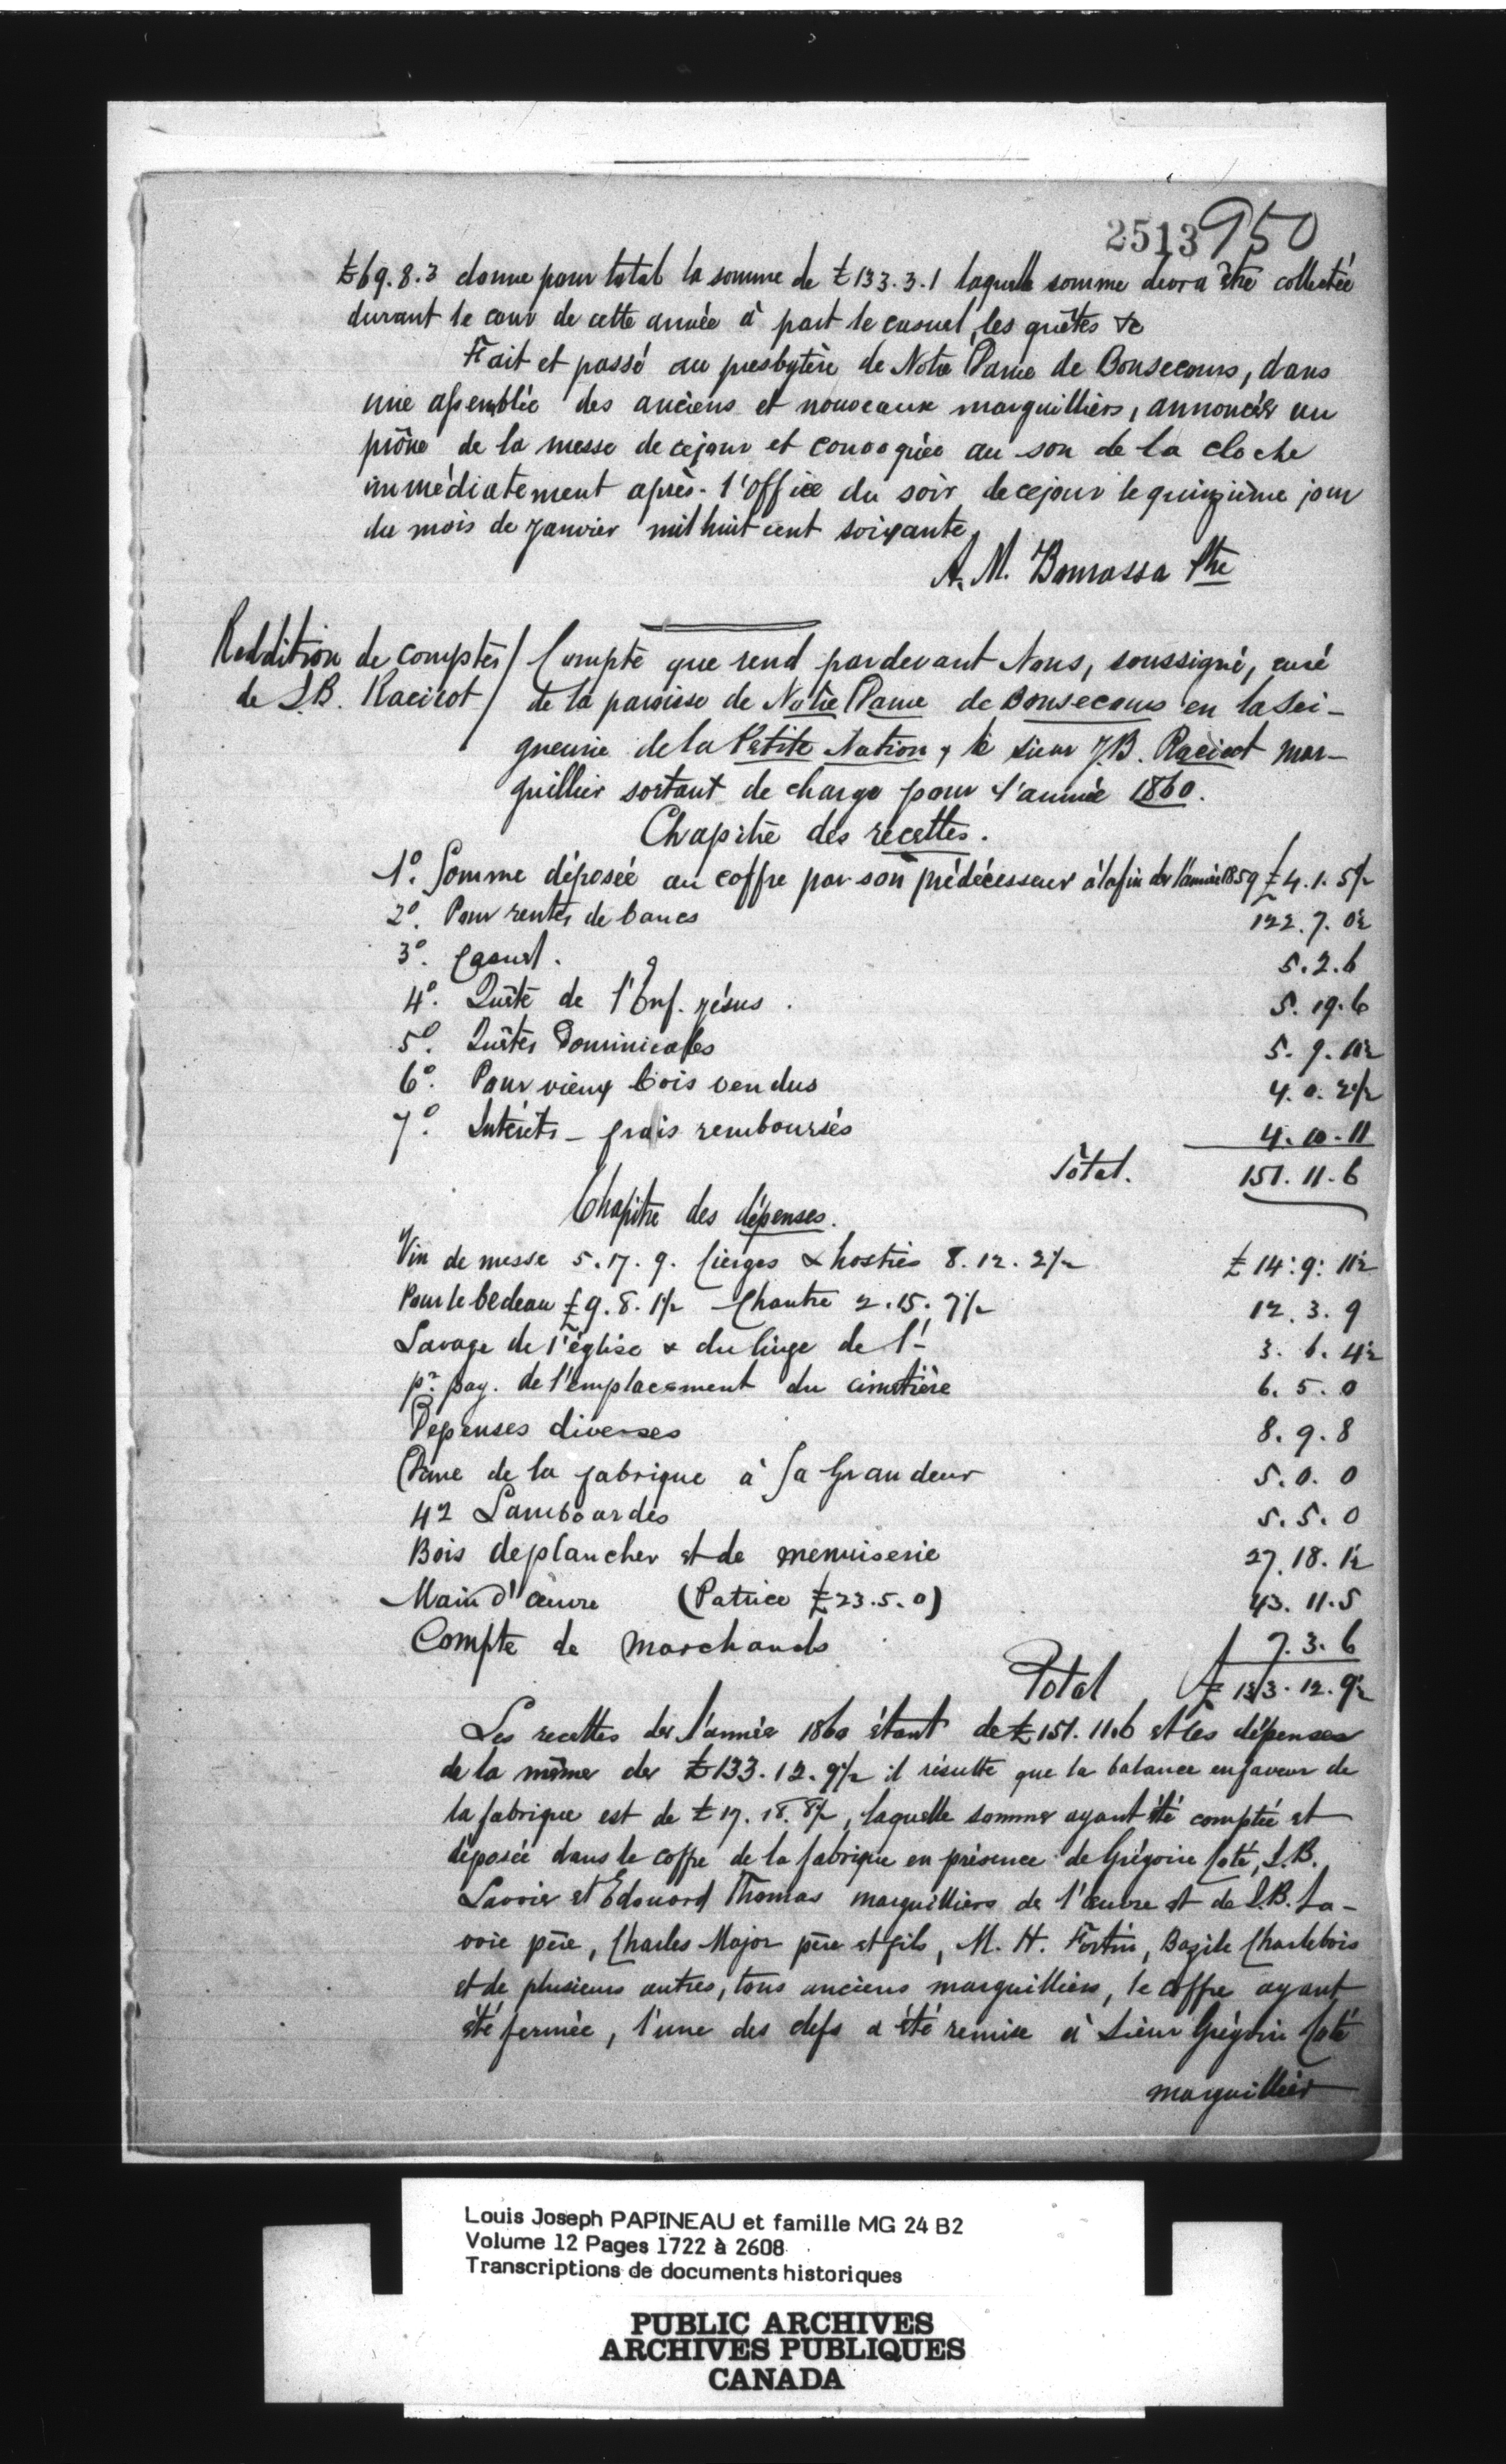 2513 950
£69.8.3 donne pour total la somme de £133.3.1 laquelle somme devra être collectée
durant le cour de cette année à part le casuel, les quêtes &c
Fait et passé au presbytère de Notre Dame de Bonsecours, dans
une assemblée des anciens et nouveaux marguilliers, annoncée au
prône de la messe de ce jour et convoquée au son de la cloche
immédiatement après l'office du soir, de ce jour le quinzième jour
du mois de Janvier mil huit cent soixante
A. M. Bourassa Ptre
Reddition de comptes / Compte que rend pardevant Nous, soussigné, curé
de J.B. Racicot / de la paroisse de Notre Dame de Bonsecours en la Sei-
gneurie de la Petite Nation, le sieur J.B. Racicot mar-
guillier sortant de charge pour l'année 1860.
Chapitre des recettes.
1º. Somme déposée au coffre par son prédécesseur à la fin de l'année 1859 £4.1.5½
2º. Pour rentes de bancs 122.7.0½
3º. Casuel. 5.2.6
4º. Quête de l'Enf. Jésus. 5.19.6
5º. Quêtes Dominicales 5.9.10½
6º. Pour vieux bois vendus 4.0.2½
7º. Intérêts - frais remboursés 4.10.11
Total. 151.11.6
Chapitre des dépenses.
Vin de messe 5.17.9. Cierges & hosties 8.12.2½ £14:9:11½
Pour le bedeau £9.8.1½ Chantre 2.15.7½ 12.3.9
Lavage de l'église & du linge de l'- 3.6.4½
pr. pay. de l'emplacement du cimetière 6.5.0
Dépenses diverses 8.9.8
Dîme de la fabrique à Sa Grandeur 5.0.0
42 Lambourdes 5.5.0
Bois de plancher et de menuiserie 27.18.1½
Main d'œuvre (Patrice £23.5.0) 43.11.5
Compte de Marchands 7.3.6
Total £133.12.9½
Les recettes de l'année 1860 étant de £151.11.6 et les dépenses
de la même de £133.12.9½ il résulte que la balance en faveur de
la fabrique est de £17.18.8½, laquelle somme ayant été comptée et
déposée dans le coffre de la fabrique en présence de Grégoire Coté, J.B.
Lavoie et Edouard Thomas marguilliers de l'œuvre et de J.B. La-
voie père, Charles Major père et fils, M. H. Fortin, Bazile Charlebois
et de plusieurs autres, tous anciens marguilliers, le coffre ayant
été fermée, l'une des clefs a été remise à Sieur Grégoire Coté
marguillier
Louis Joseph PAPINEAU et famille MG 24 B2
Volume 12 Pages 1722 à 2608
Transcriptions de documents historiques
PUBLIC ARCHIVES
ARCHIVES PUBLIQUES
CANADA